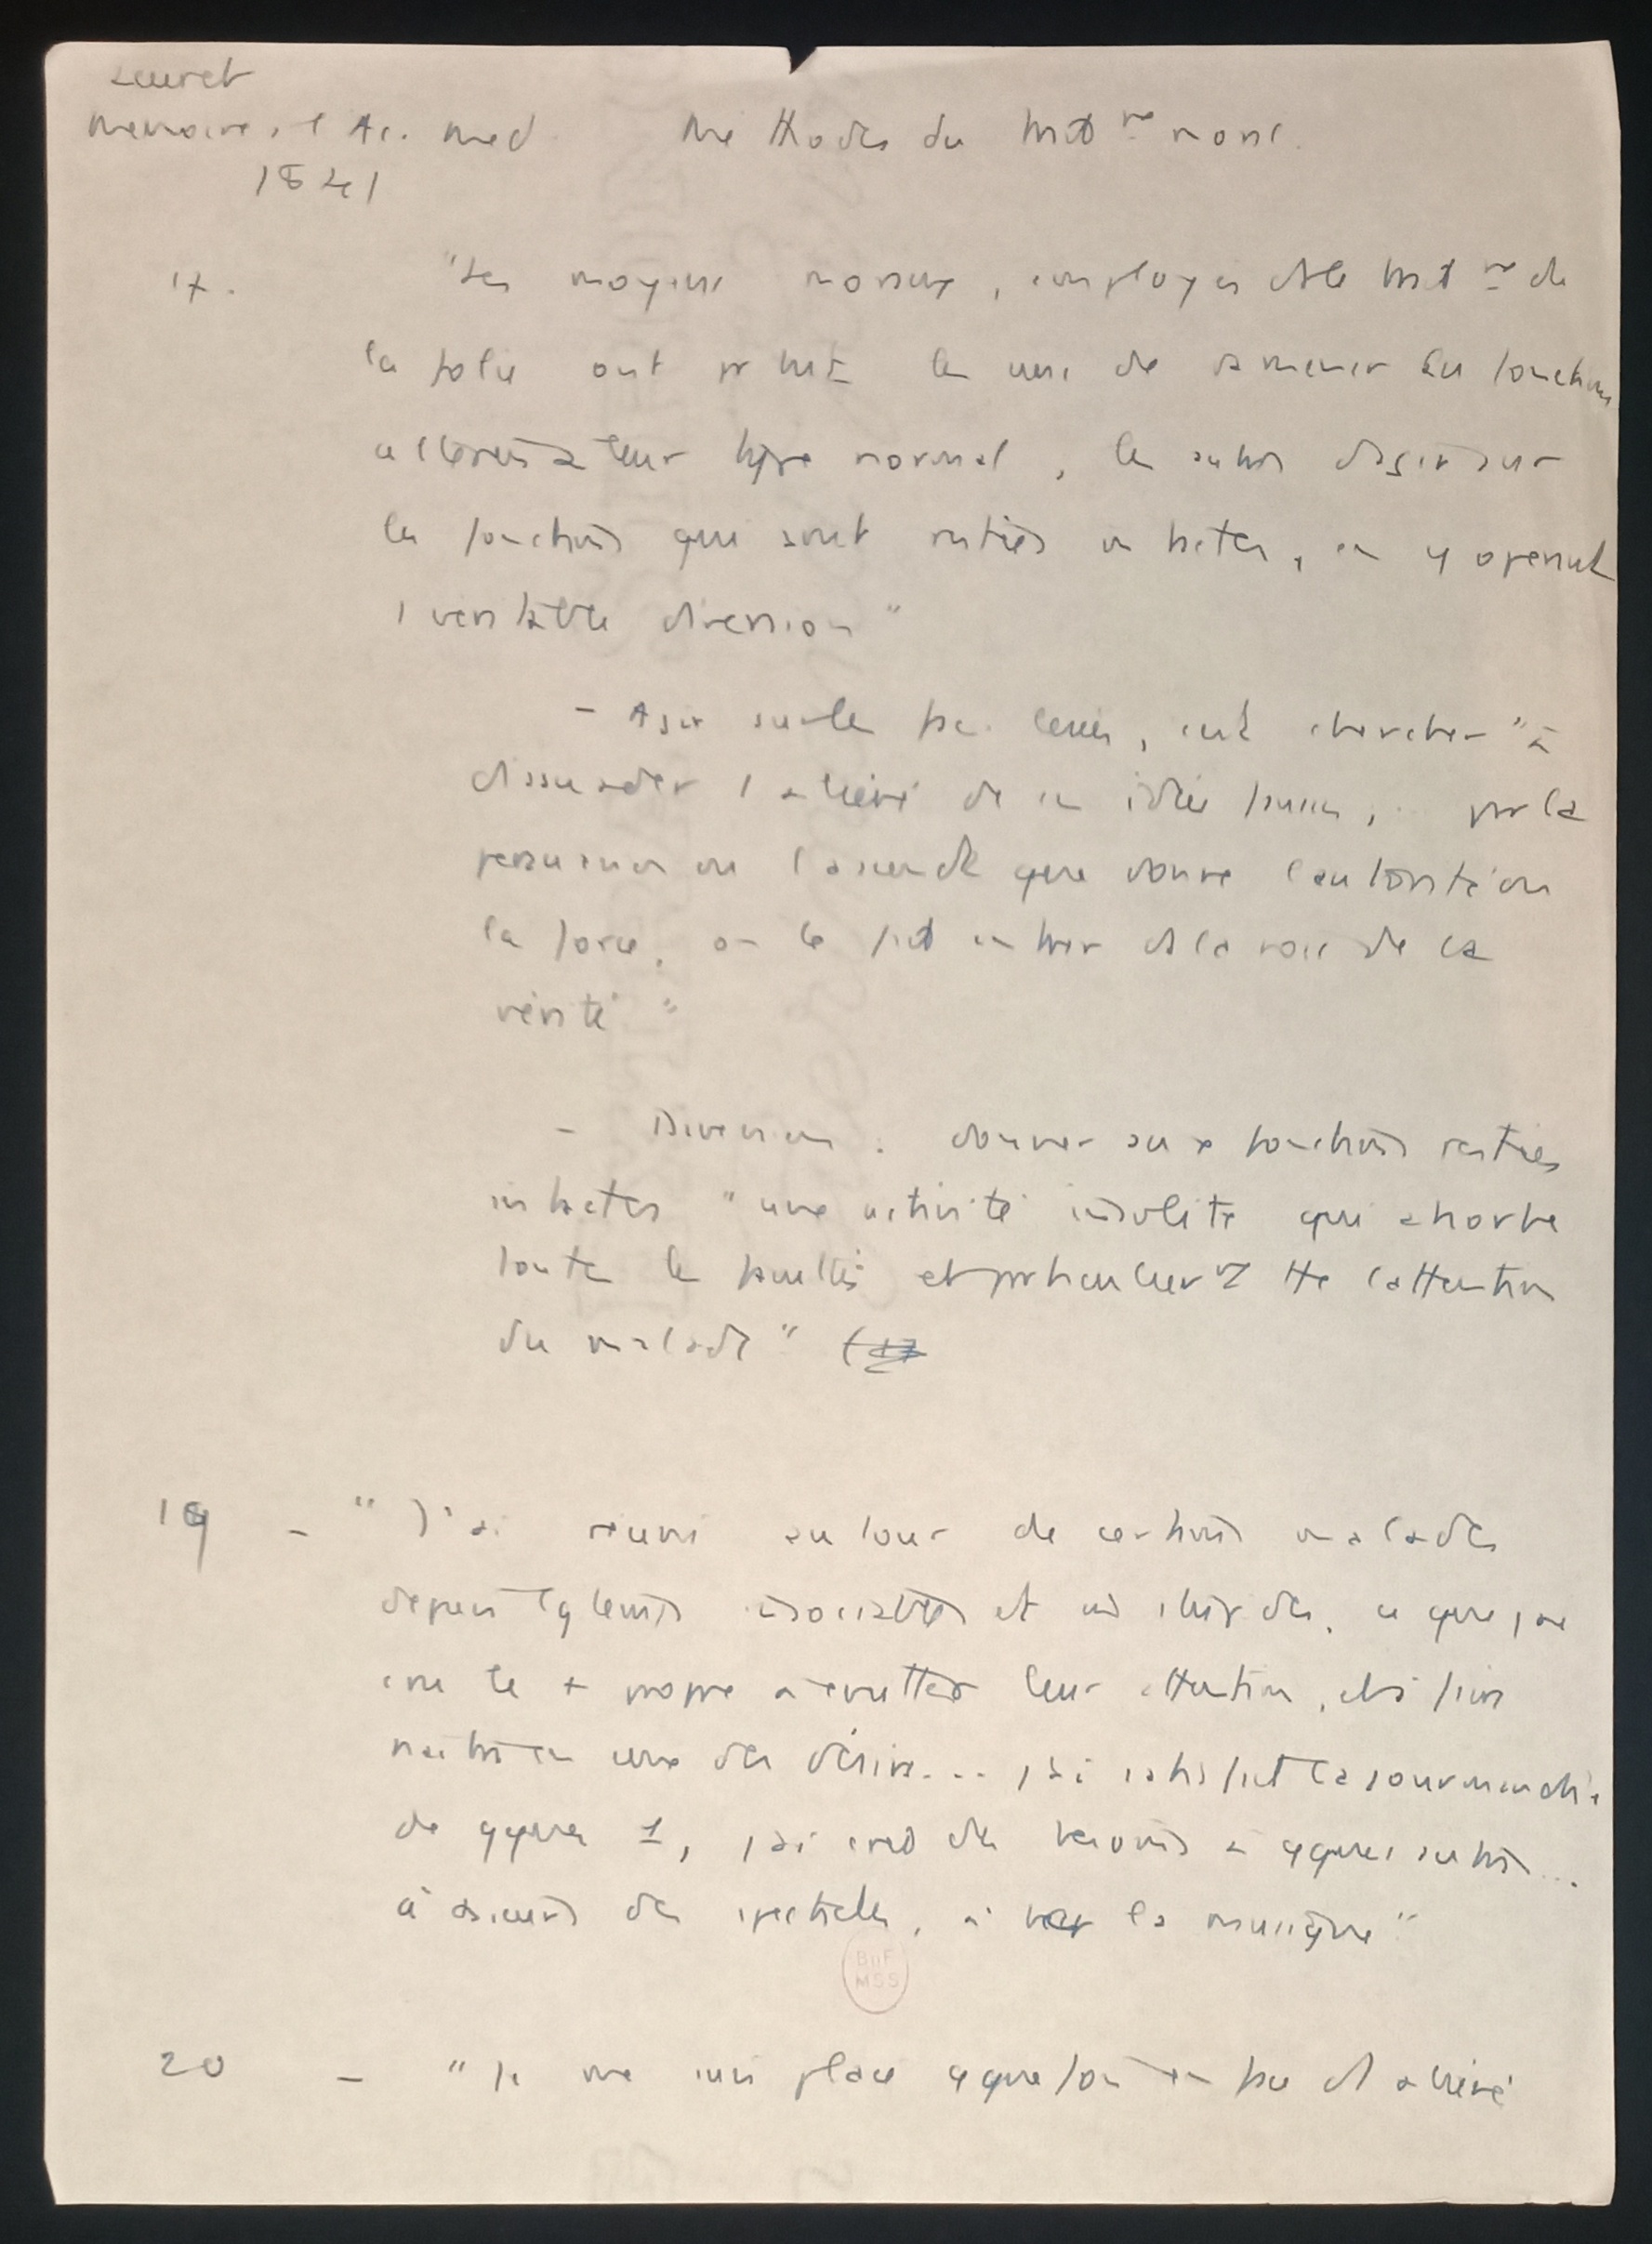 Leuret
Memoires de l'Ac. Med. Methodes du trait^re moral.
1841
17. "Les moyens moraux, employés ds le trait^re de
la folie ont pr but les uns de ramener les fonctions
altérées à leur type normal, les autres d'agir sur
les fonctions qui sont restées intactes, en y operant
1 veritable diversion"
- Agir sur les fac. lésées, c'est chercher "à
dissuader l'aliéné de ses idées fausses, .. par la
persuasion ou l'ascendt que donne l'autorité ou
la force, on le fait entrer ds la voie de la
vérité"
- Diversion : donner aux fonctions restées
intactes "une activité insolite qui absorbe
toutes les facultés et particulierᵗ tte l'attention
du malade"
19 - "J'ai réuni autour de certains malades
depuis lgtemps insociables et ce que j'ai
cru le + propre à éveiller leur attention, à faire
naitre en eux des désirs... j'ai satisfait la gourmandise
de qques 1, j'ai créé des besoins à qques autres...
à assisté des spectacles, à la musique"
BnF
MSS
20 - "Je me suis placé qquefois en face d'1 aliéné